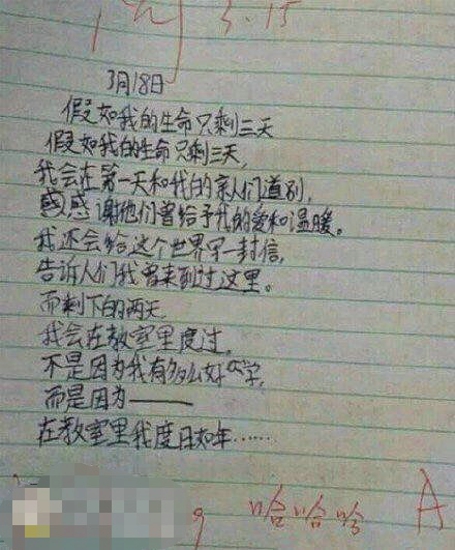 阅 3.15
3月18日
假如我的生命只剩三天
假如我的生命只剩三天,
我会在第一天和我的亲人们道别,
感谢他们曾给予我的爱和温暖。
我还会给这个世界写一封信,
告诉人们我曾来到过这里。
而剩下的两天
我会在教室里度过,
不是因为我有多么好学,
而是因为———
在教室里我度日如年……
哈哈哈 A